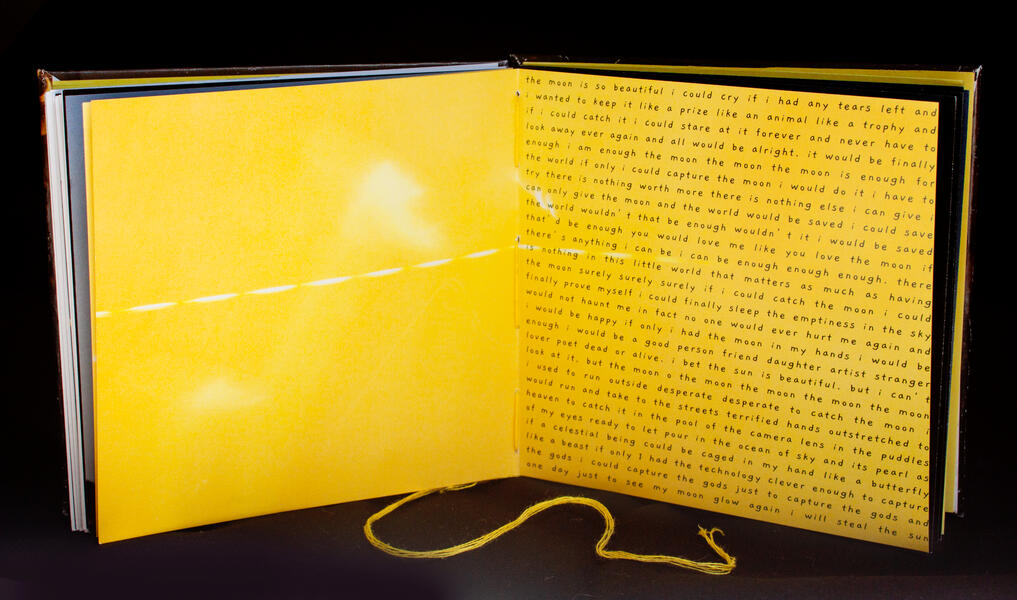 the moon is so beautiful i could cry if i had any tears left and
i wanted to keep it like a prize like an animal like a trophy and
if i could catch it i could stare at it forever and never have to
look away ever again and all would be alright. it would be finally
enough i am enough the moon the moon the moon is enough for
the world if only i could capture the moon i would do it i have to
try there is nothing worth more there is nothing else i can give i
can only give the moon and the world would be saved i could save
the world wouldn't that be enough wouldn't it i would be saved
that'd be enough you would love me like you love the moon if
there's anything i can be i can be enough enough enough. there
is nothing in this little world that matters as much as having
the moon surely surely surely if i could catch the moon i could
finally prove myself i could finally sleep the emptiness in the sky
would not haunt me in fact no one would ever hurt me again and
i would be happy if only i had the moon in my hands i would be
enough i would be a good person friend daughter artist stranger
lover poet dead or alive. i bet the sun is beautiful. but i can't
look at it. but the moon o the moon the moon the moon the moon
i used to run outside desperate desperate to catch the moon i
would run and take to the streets terrified hands outstretched to
heaven to catch it in the pool of the camera lens in the puddles
of my eyes ready to let pour in the ocean of sky and its pearl as
if a celestial being could be caged in my hand like a butterfly
like a beast if only I had the technology clever enough to capture
the gods i could capture the gods just to capture the gods and
one day just to see my moon glow again i will steal the sun